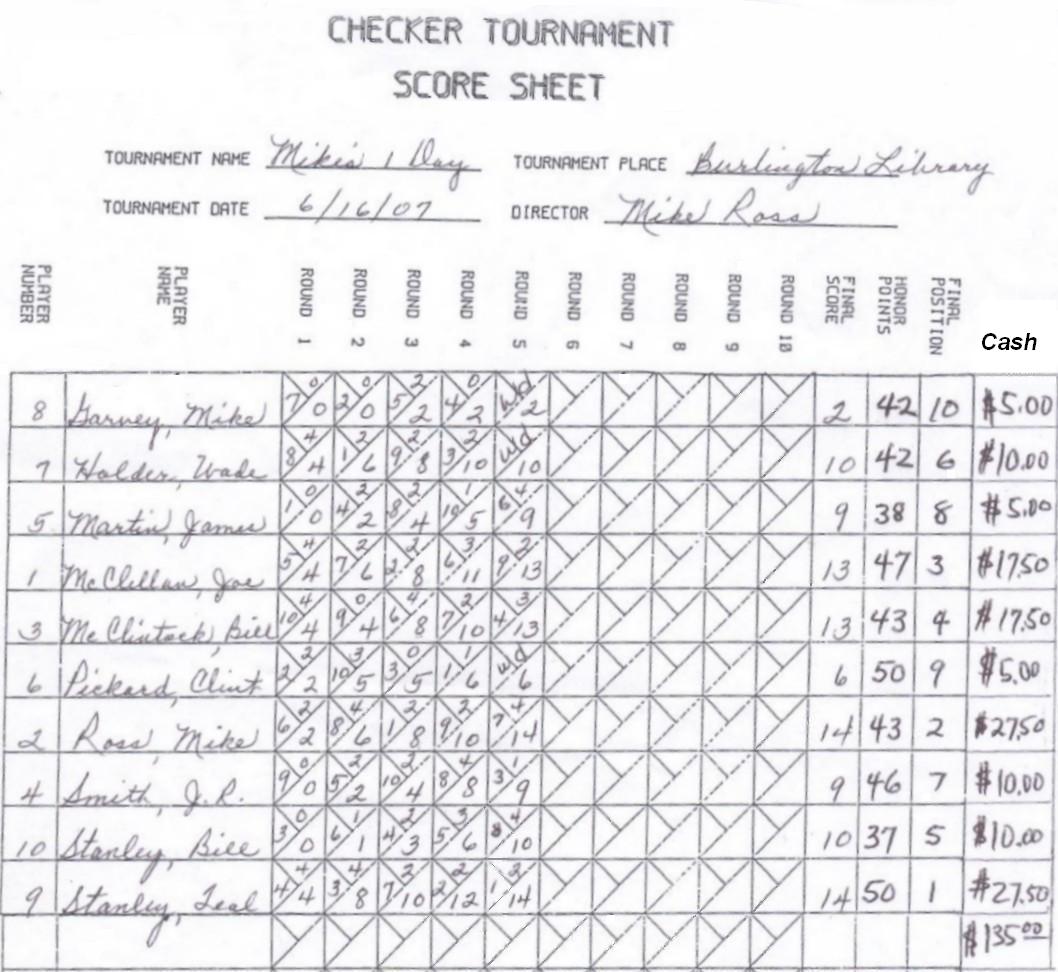 CHECKER TOURNAMENT
SCORE SHEET
TOURNAMENT NAME Mike's 1 Day TOURNAMENT PLACE Burlington Library
TOURNAMENT DATE 6/16/07 DIRECTOR Mike Ross
PLAYER NUMBER PLAYER NAME ROUND 1 ROUND 2 ROUND 3 ROUND 4 ROUND 5 ROUND 6 ROUND 7 ROUND 8 ROUND 9 ROUND 10 FINAL SCORE HONOR POINTS FINAL POSITION Cash
8 Garvey, Mike 7 0 0 2 0 0 5 2 2 4 0 2 wd 2 2 42 10 $5.00
7 Holder, Wade 8 4 4 1 2 6 9 2 8 3 2 10 wd 10 10 42 6 $10.00
5 Martin, James 1 0 0 4 2 2 8 2 4 10 1 5 6 4 9 9 38 8 $5.00
1 McClellan, Joe 5 4 4 7 2 6 2 2 8 6 3 11 9 2 13 13 47 3 $17.50
3 McClintock, Bill 10 4 4 9 0 4 6 4 8 7 2 10 4 3 13 13 43 4 $17.50
6 Pickard, Clint 2 2 2 10 3 5 3 0 5 1 1 6 wd 6 6 50 9 $5.00
2 Ross, Mike 6 2 2 8 4 6 1 2 8 9 2 10 7 4 14 14 43 2 $27.50
4 Smith, J.R. 9 0 0 5 2 2 10 2 4 8 4 8 3 1 9 9 46 7 $10.00
10 Stanley, Bill 3 0 0 6 1 1 4 2 3 5 3 6 8 4 10 10 37 5 $10.00
9 Stanley, Teal 4 4 4 3 4 8 7 2 10 2 2 12 1 2 14 14 50 1 $27.50
$135.00